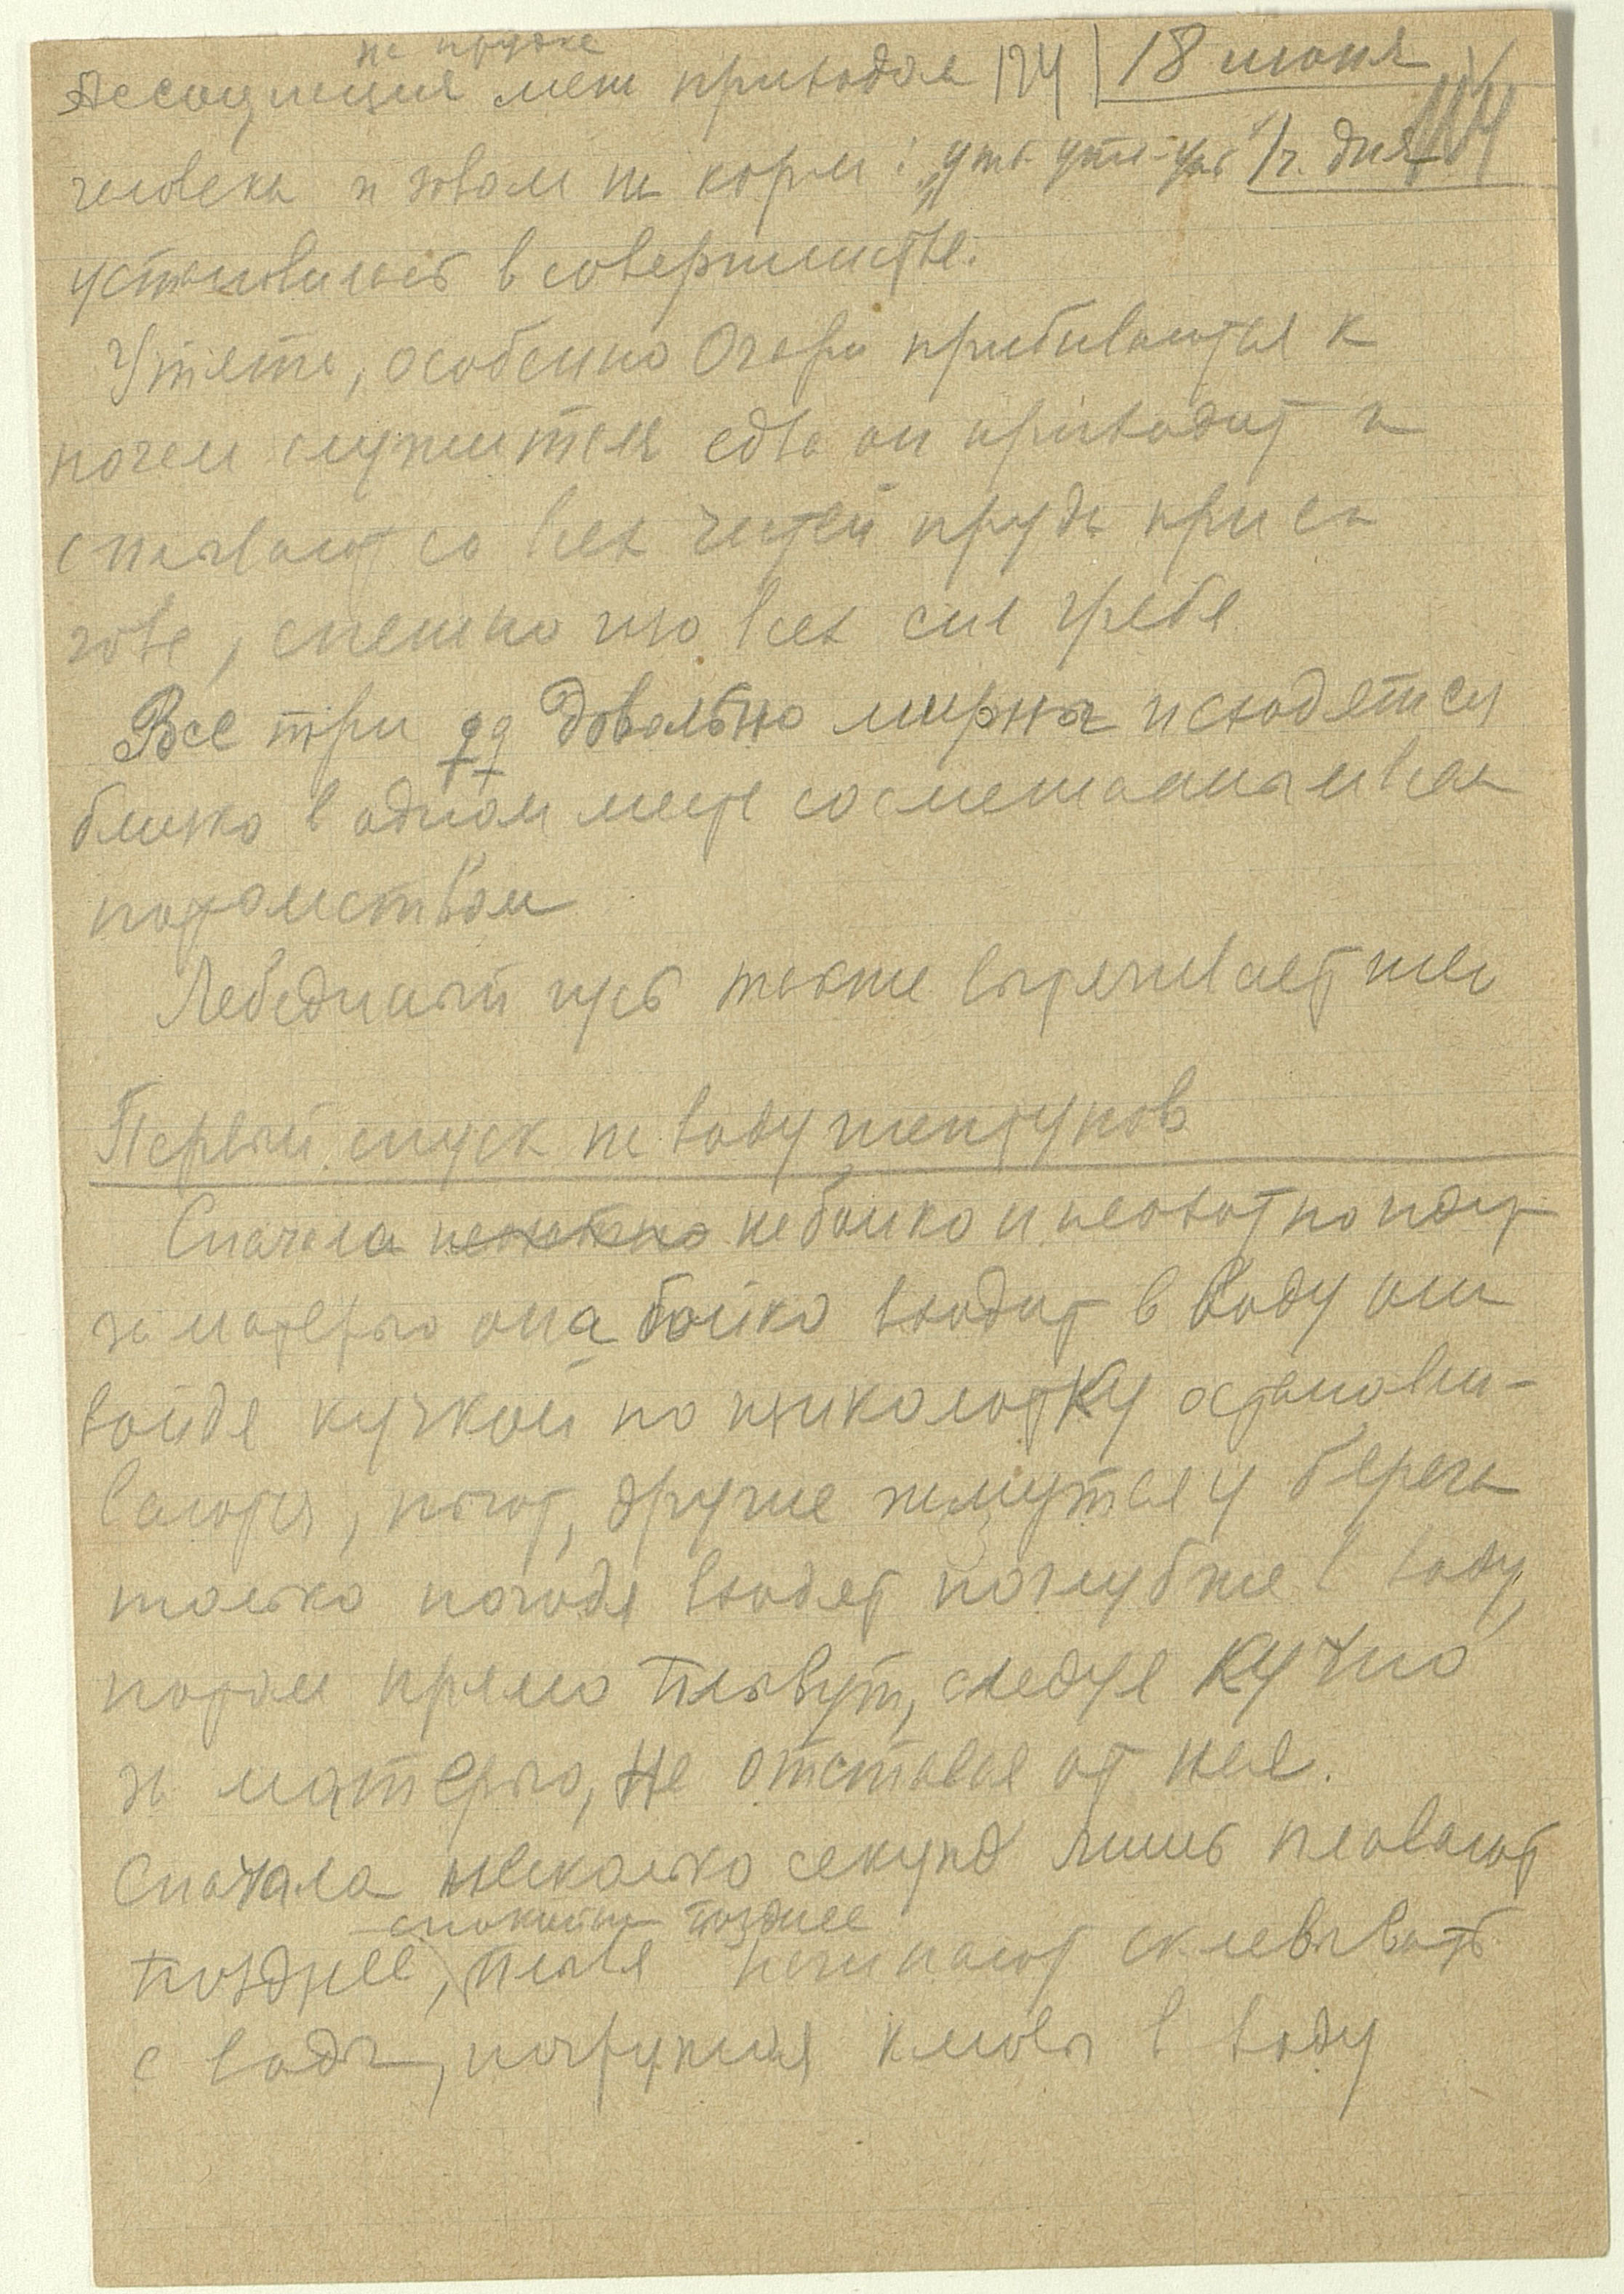 на прудке
Ассоциация меж приходом |124| 18 июня
человека и зовом на корм: "уть уть-уть" 1 ч. дня 114
установилась в совершенстве.
Утята, особенно Огари прибиваются к
ногам служителя едва он приходит и
сплывают со всех частей пруда при его
зове, спешно изо всех сил гребя
Все три ♀♀ довольно мирны и сходятся
близко в одном месте со смешанным их
потомством
Лебединый гусь также вытягивает шею
Первый спуск на воду шептунов
Сначала неохотно не бойко и неохотно идут
за матерью она бойко входит в воду они
войдя кучкой по щиколотку останови-
ваются, пьют, другие жмутся у берега
только погодя входят поглубже в воду,
потом прямо плывут, следуя кучно
за матерью, не отставая от нея.
Сначала несколько секунд лишь плавают
спокойно позднее
позднее, плывя начинают склевывать
с воды, погружая клювы в воду